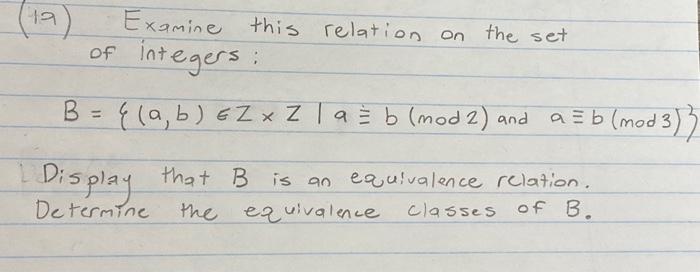 (19) Examine this relation on the set
of integers:
B = {(a,b) ∈ Z x Z | a ≡ b (mod 2) and a ≡ b (mod 3)}
Display that B is an equivalence relation.
Determine the equivalence classes of B.